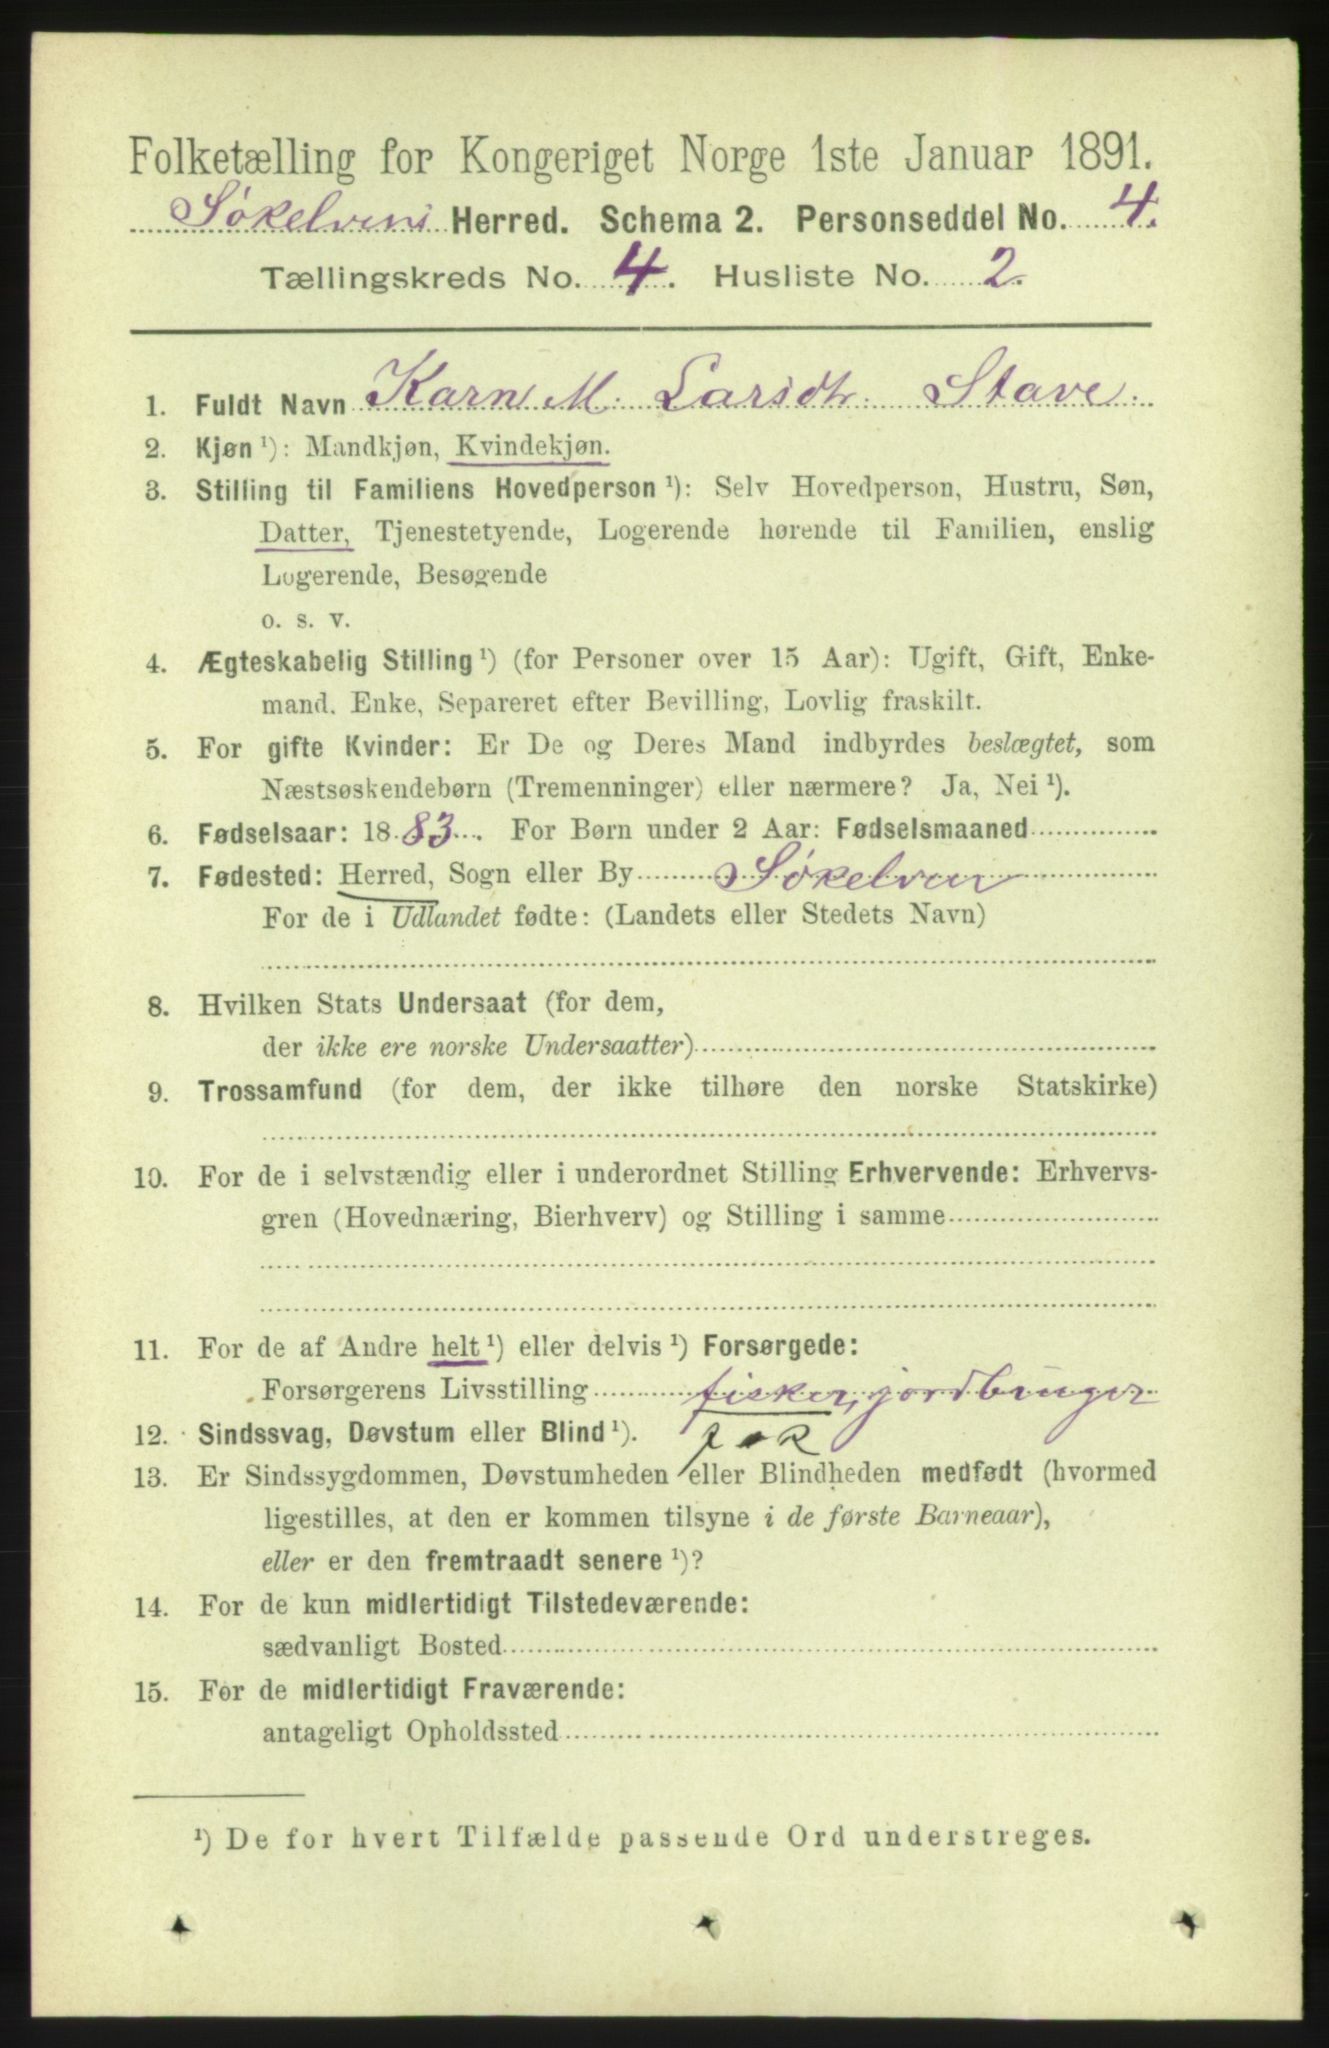 Folketælling for Kongeriget Norge 1ste Januar 1891.
Søkelvens Herred. Schema 2. Personseddel No. 4.
Tællingskreds No. 4. Husliste No. 2.
1. Fuldt Navn Karn M. Larsdtr. Stave.
2. Kjøn ¹): Mandkjøn, Kvindekjøn.
3. Stilling til Familiens Hovedperson ¹): Selv Hovedperson, Hustru, Søn,
Datter, Tjenestetyende, Logerende hørende til Familien, enslig
Logerende, Besøgende
o. s. v.
4. Ægteskabelig Stilling ¹) (for Personer over 15 Aar): Ugift, Gift, Enke-
mand. Enke, Separeret efter Bevilling, Lovlig fraskilt.
5. For gifte Kvinder: Er De og Deres Mand indbyrdes beslægtet, som
Næstsøskendebørn (Tremenninger) eller nærmere? Ja, Nei ¹).
6. Fødselsaar: 1883. For Børn under 2 Aar: Fødselsmaaned
7. Fødested: Herred, Sogn eller By Søkelven
For de i Udlandet fødte: (Landets eller Stedets Navn)
8. Hvilken Stats Undersaat (for dem,
der ikke ere norske Undersaatter)
9. Trossamfund (for dem, der ikke tilhøre den norske Statskirke)
10. For de i selvstændig eller i underordnet Stilling Erhvervende: Erhvervs-
gren (Hovednæring, Bierhverv) og Stilling i samme
11. For de af Andre helt ¹) eller delvis ¹) Forsørgede:
Forsørgerens Livsstilling fisker, jordbruger
12. Sindssvag, Døvstum eller Blind ¹).
13. Er Sindssygdommen, Døvstumheden eller Blindheden medfødt (hvormed
ligestilles, at den er kommen tilsyne i de første Barneaar),
eller er den fremtraadt senere ¹)?
14. For de kun midlertidigt Tilstedeværende:
sædvanligt Bosted
15. For de midlertidigt Fraværende:
antageligt Opholdssted
¹) De for hvert Tilfælde passende Ord understreges.